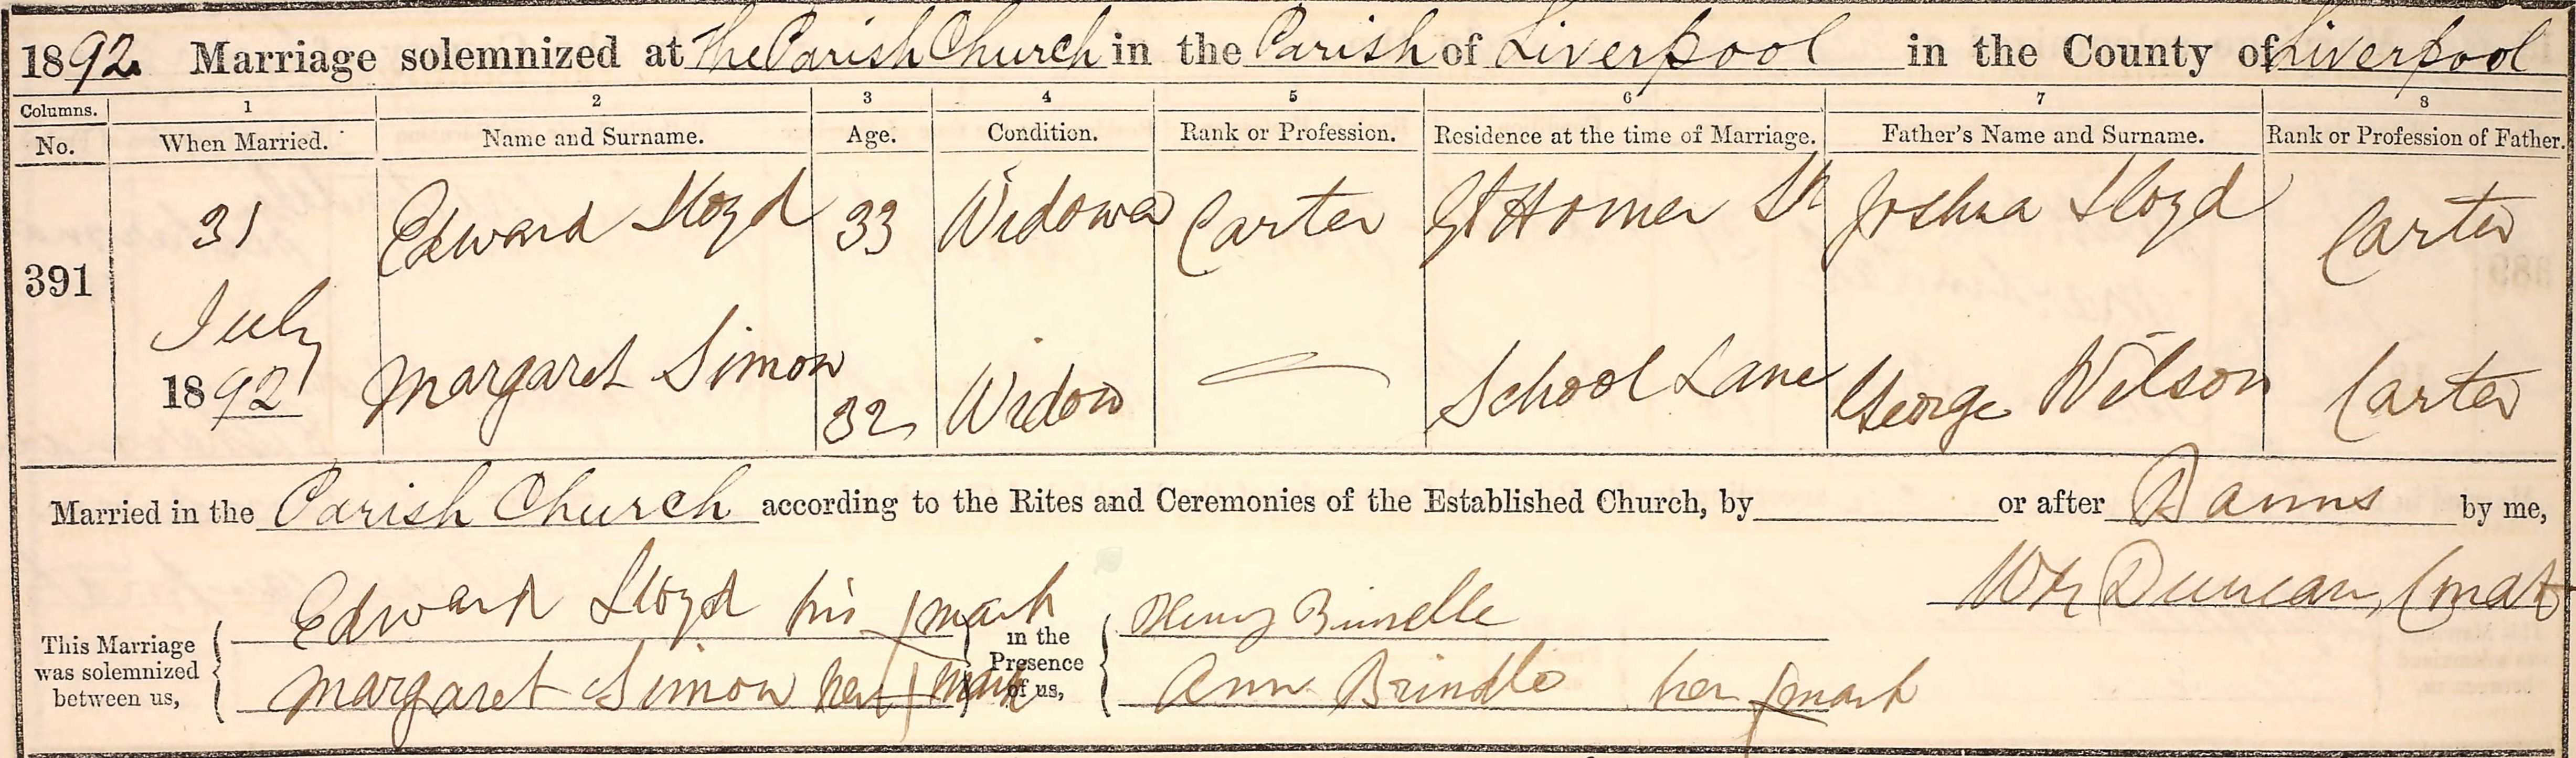 1892 Marriage solemnized at The Parish Church in the Parish of Liverpool in the County of Liverpool
Columns. 1 2 3 4 5 6 7 8
No. When Married. Name and Surname. Age. Condition. Rank or Profession. Residence at the time of Marriage. Father's Name and Surname. Rank or Profession of Father.
391 31 July 1892 Edward Lloyd 33 Widower Carter Gt Homer St Joshua Lloyd Carter
Margaret Simon 32 Widow — School Lane George Wilson Carter
Married in the Parish Church according to the Rites and Ceremonies of the Established Church, by or after Banns by me,
Wm Duncan, Curate
This Marriage was solemnized between us, Edward Lloyd his mark in the Presence of us, Henry Brindle
Margaret Simon her mark Ann Brindle her mark